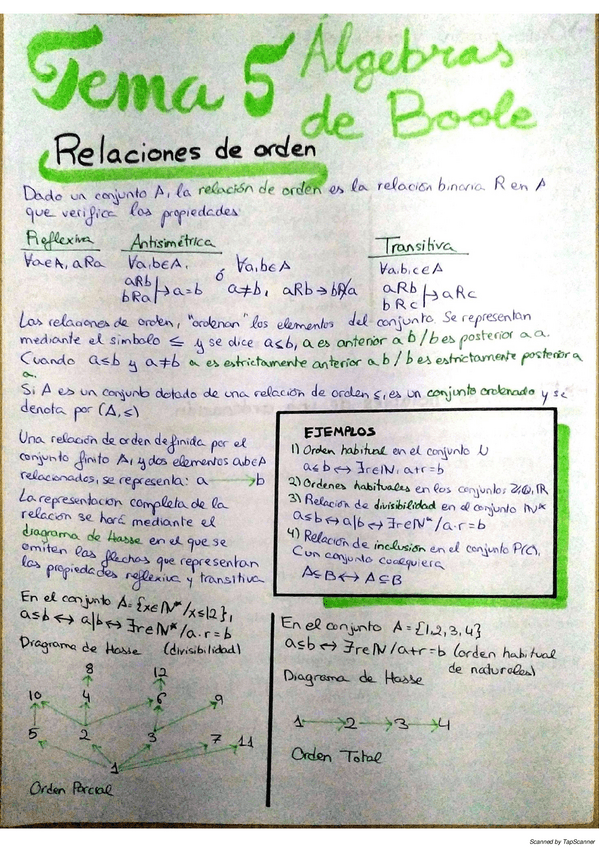 Tema 5 Álgebras
de Boole
Relaciones de orden
Dado un conjunto A, la relación de orden es la relación binaria R en A
que verifica las propiedades:
Reflexiva
∀a∈A, aRa
Antisimétrica
∀a,b∈A,
aRb
bRa → a=b
ó
∀a,b∈A
a≠b, aRb → bR̸a
Transitiva
∀a,b,c∈A
aRb
bRc → aRc
Las relaciones de orden, "ordenan" los elementos del conjunto. Se representan
mediante el símbolo ≤ y se dice a≤b, a es anterior a b / b es posterior a a.
Cuando a≤b y a≠b a es estrictamente anterior a b / b es estrictamente posterior a
a.
Si A es un conjunto dotado de una relación de orden ≤, es un conjunto ordenado y se
denota por (A,≤)
Una relación de orden definida por el
conjunto finito A, y dos elementos a,b∈A
relacionados, se representa: a → b
La representación completa de la
relación se hará mediante el
diagrama de Hasse en el que se
omiten las flechas que representan
las propiedades reflexiva y transitiva
EJEMPLOS
1) Orden habitual en el conjunto N
a≤b ↔ ∃r∈N, a+r=b
2) Ordenes habituales en los conjuntos Z,Q,R
3) Relación de divisibilidad en el conjunto N*
a≤b ↔ a|b ↔ ∃r∈N* / a·r=b
4) Relación de inclusión en el conjunto P(C),
C un conjunto cualquiera
A≤B ↔ A⊆B
En el conjunto A={x∈N*/x≤12},
a≤b ↔ a|b ↔ ∃r∈N*/a·r=b
Diagrama de Hasse (divisibilidad)
8 12
10 4 6 9
5 2 3 7 11
1
Orden Parcial
En el conjunto A={1,2,3,4}
a≤b ↔ ∃r∈N/a+r=b (orden habitual
de naturales)
Diagrama de Hasse
1 → 2 → 3 → 4
Orden Total
Scanned by TapScanner